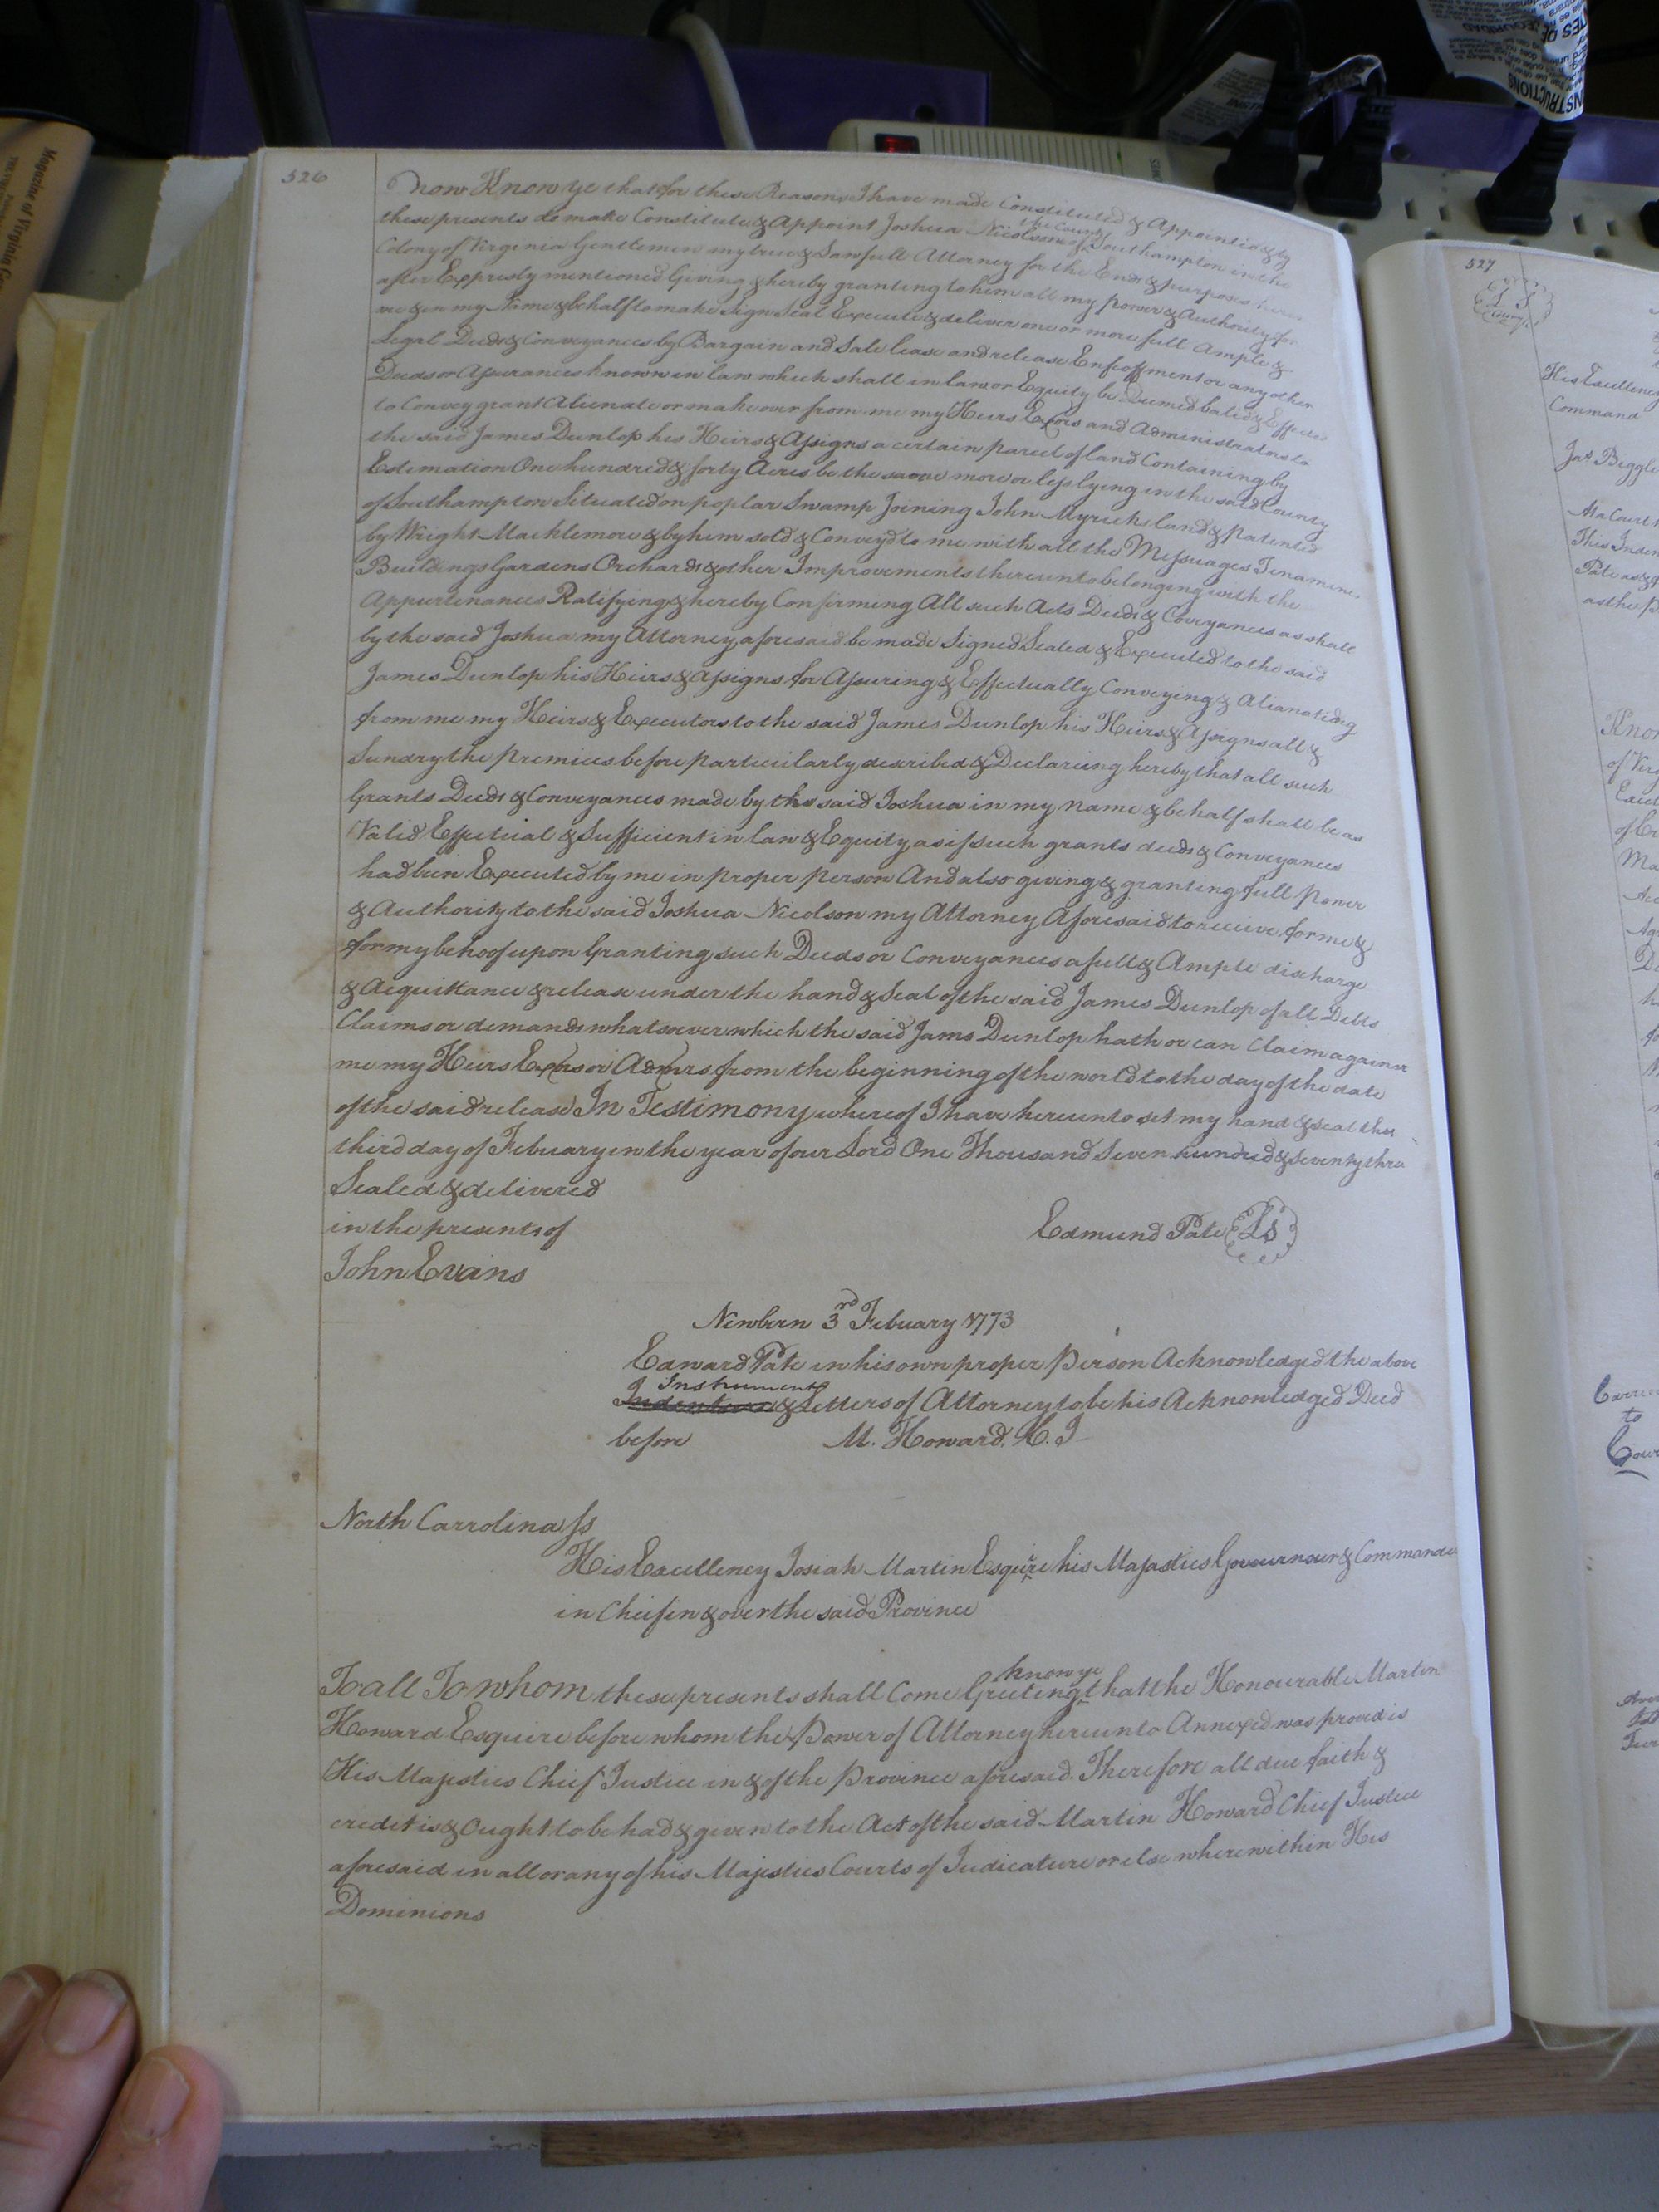 526
Now Know ye that for these Reasons I have made Constituted & Appointed & by
these presents do make Constitute & Appoint Joshua Nicolson of the County Southampton in the
Colony of Virginia Gentlemen my true & Lawfull Attorney for the Ends & purposes herein
after Expresly mentioned Giving & hereby granting to him all my power & Authority for
me & in my Name & behalf to make Sign Seal Execute & deliver one or more full Ample &
Legal Deeds & Conveyances by Bargain and Sale lease and release Enfeoffment or any other
Deeds or Assurances known in law which shall in law or Equity be Deemed valid & Effectual
to Convey grant Alienate or make over from me my Heirs Exors and Administrators to
the said James Dunlop his Heirs & Assigns a certain parcel of land Containing by
Estimation One hundred & forty Acres be the same more or less lying in the said County
of Southampton Situated on poplar Swamp Joining John Myricks land & patented
by Wright Macklemore & by him sold & Convey'd to me with all the Messuages Tenaments
Buildings Gardens Orchards & other Improvements thereunto belonging with the
Appurtinances Ratifying & hereby Confirming All such Acts Deeds & Coveyances as shall
by the said Joshua my Attorney aforesaid be made Signed Sealed & Executed to the said
James Dunlop his Heirs & Assigns for Assuring & Effectually Conveying & Alianating
from me my Heirs & Executors to the said James Dunlop his Heirs & Assigns all &
Sundry the premices before particularly described & Declareing hereby that all such
Grants Deeds & Conveyances made by the said Joshua in my name & behalf shall be as
Valid Effectual & Sufficient in law & Equity as if such grants deeds & Conveyances
had been Executed by me in proper person And also giving & granting full Power
& Authority to the said Joshua Nicolson my Attorney Aforesaid to receive for me &
for my behoof upon Granting such Deeds or Conveyances a full & Ample discharge
& Acquittance & release under the hand & Seal of the said James Dunlop of all Debts
Claims or demands whatsoever which the said Jams Dunlop hath or can Claim against
me my Heirs Exors or Admrs from the beginning of the world to the day of the date
of the said release In Testimony whereof I have hereunto set my hand & seal the
third day of Febuary in the year of our Lord One Thousand Seven hundred & Seventy three
Sealed & delivered
in the presents of
Edmund Pate Ls
John Evans
Newbern 3rd Febuary 1773
Edward Pate in his own proper Person Acknowledged the above
Instruments
Indenture & Letters of Attorney to be his Acknowledged Deed
before M. Howard. C. J
North Carrolina ss
His Excellency Josiah Martin Esquire his Majasties Governour & Commander
in Cheif in & over the said Province
know ye
To all To whom these presents shall Come Greeting that the Honourable Martin
Howard Esquire before whom the Power of Attorney hereunto Annexed was proved is
His Majesties Chief Justice in & of the Province aforesaid. Therefore all due faith &
credit is & Ought to be had & given to the Act of the said Martin Howard Chief Justice
aforesaid in all or any of his Majesties Courts of Judicature or else where within His
Dominions
527
L S
His Excellency
Command
Jas Biggle
At a Court
This Inden
Pate as & g
as the p
Know
of Virg
Magazine of Virginia
INSTRUCTIONS